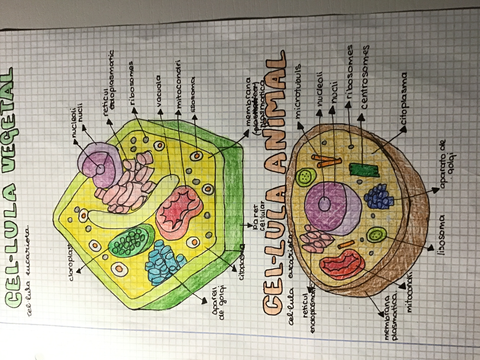 CEL·LULA VEGETAL
cel·lula eucariota
nucleoli
nucli
reticul
endoplasmatic
ribosomes
vacuola
mitocondri
membrana
plasmatica
cloroplast
aparell
de golgi
citoplasma
paret
cel·lular
CEL·LULA ANIMAL
cel·lula eucariota
microtubuls
nucleoli
nucli
ribosomes
centrosomes
citoplasma
aparato de
golgi
lisosoma
mitocondri
membrana
plasmatica
reticul
endoplasmatic